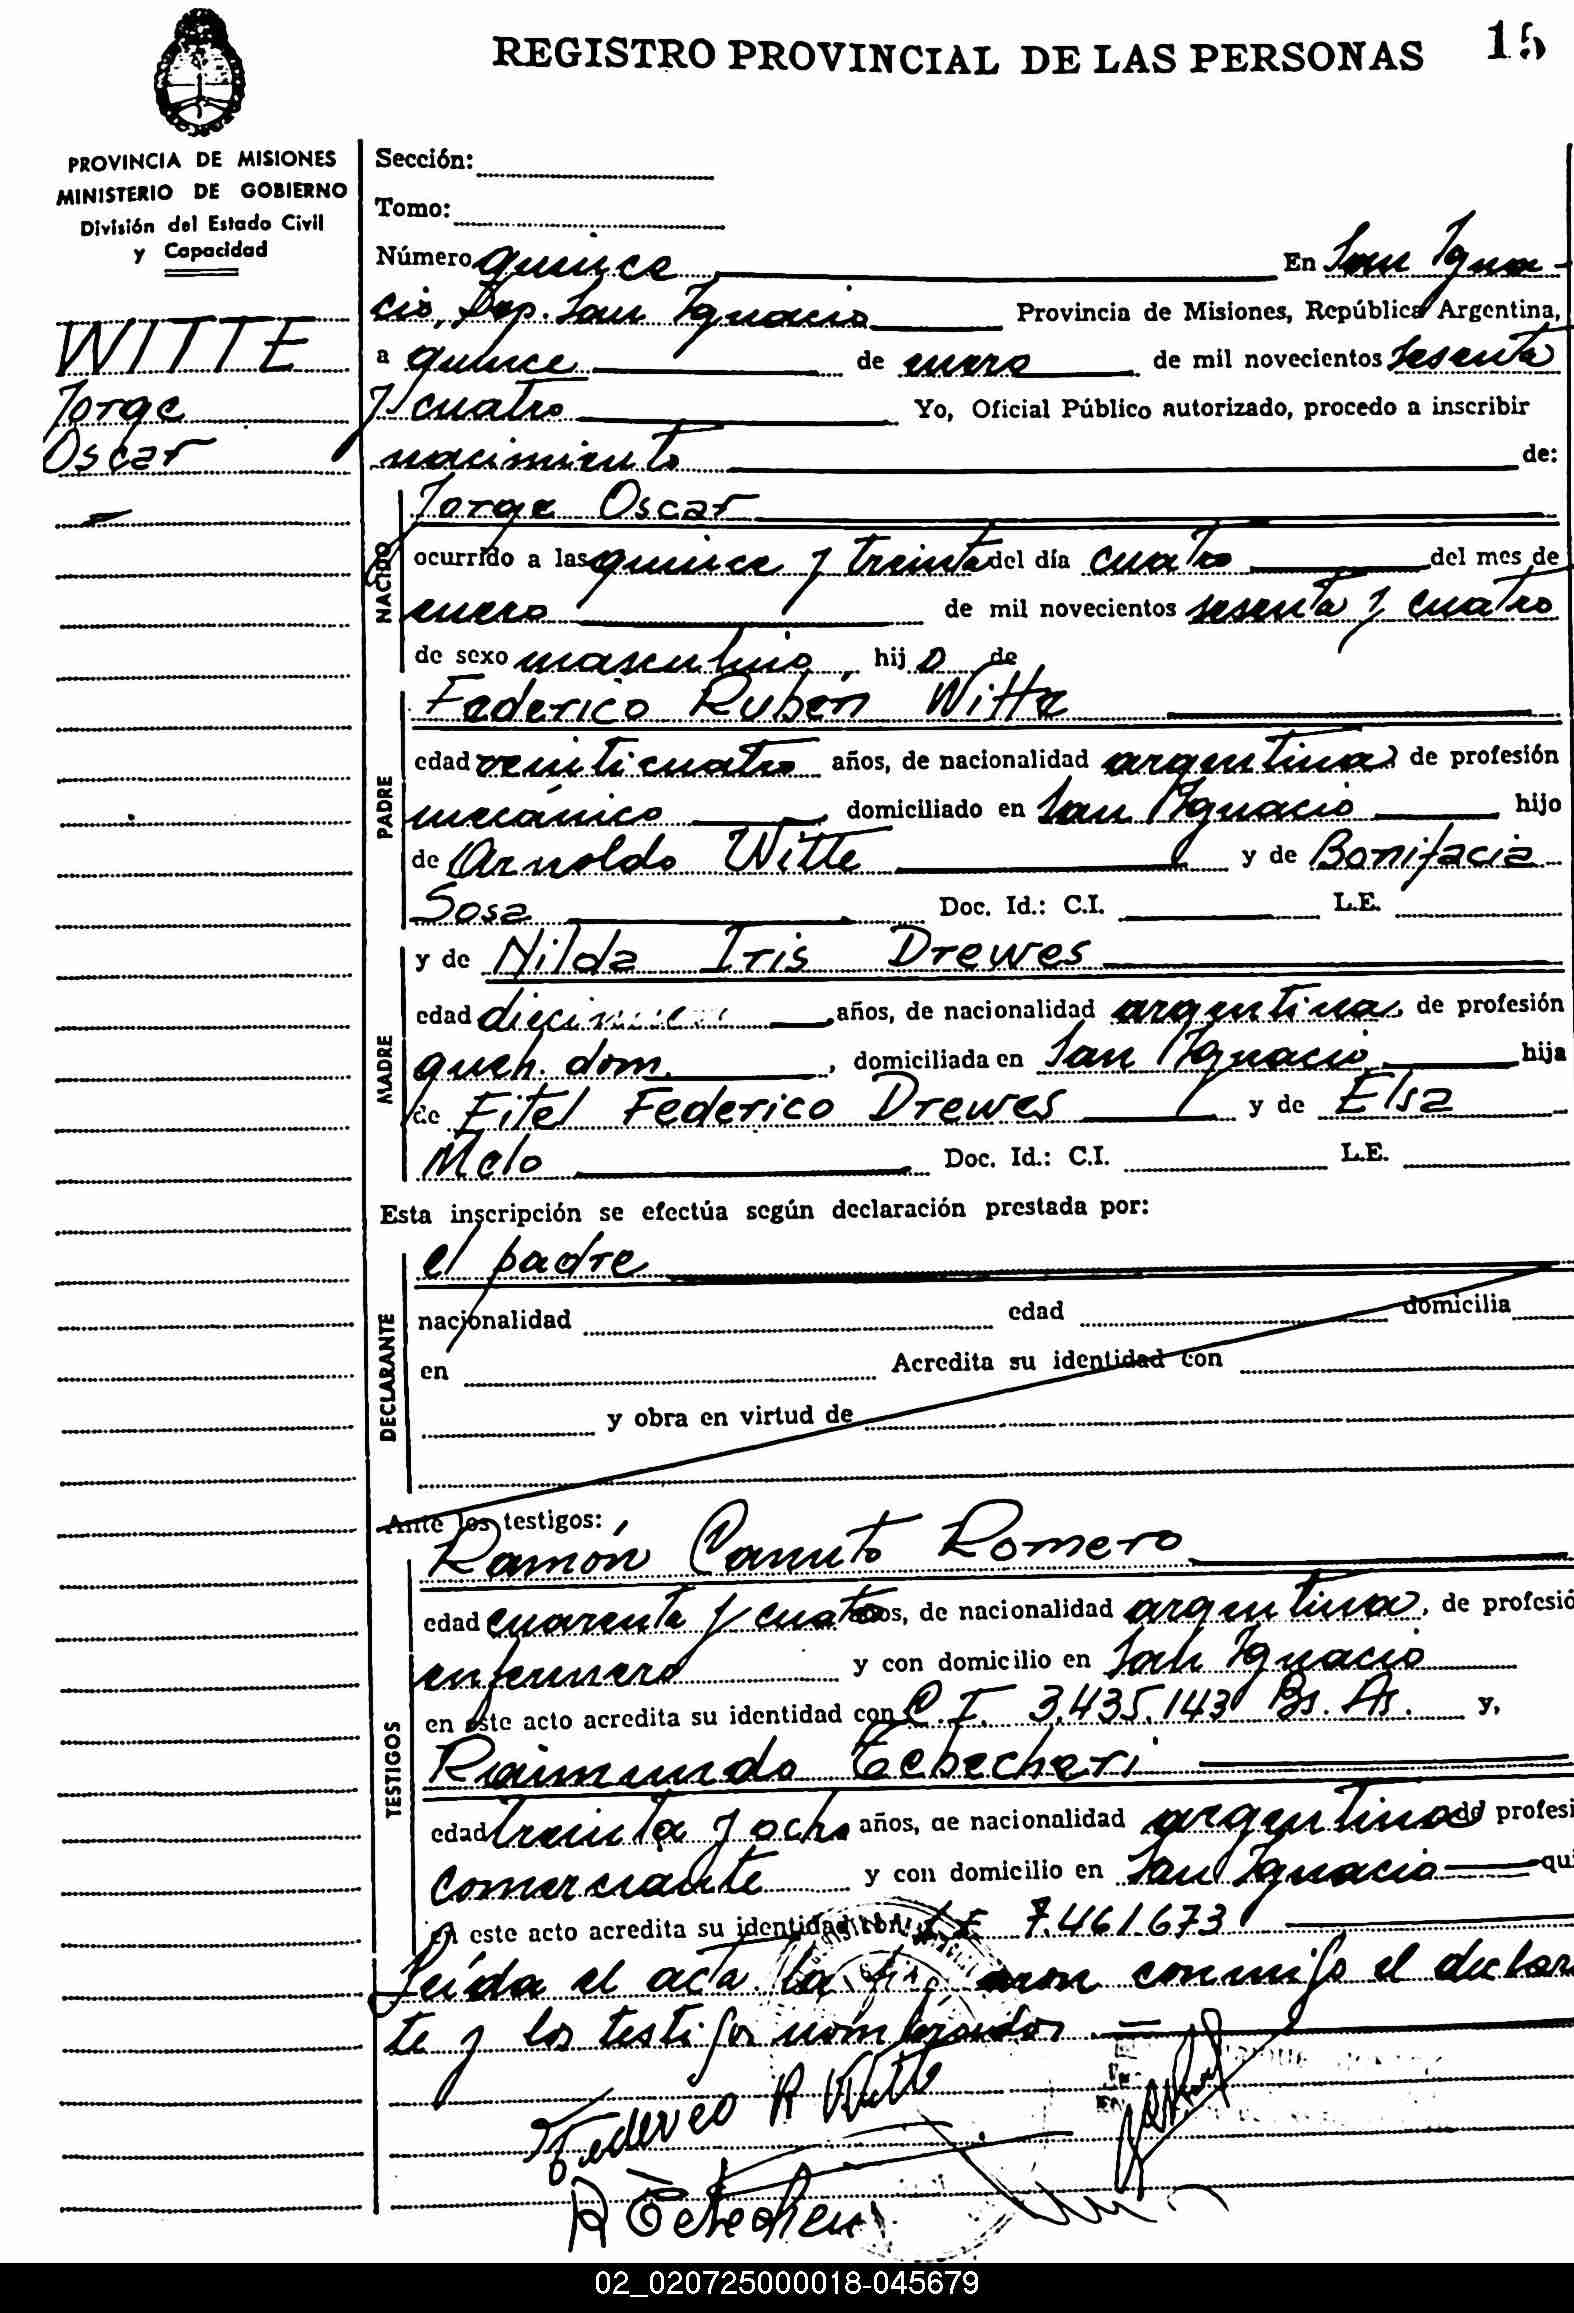 REGISTRO PROVINCIAL DE LAS PERSONAS 15
PROVINCIA DE MISIONES
MINISTERIO DE GOBIERNO
División del Estado Civil
y Capacidad
WITTE
Jorge
Oscar
Sección:
Tomo:
Número quince En San Igna-
cio, Dep. San Ignacio Provincia de Misiones, República Argentina,
a quince de enero de mil novecientos sesenta
y cuatro Yo, Oficial Público autorizado, procedo a inscribir
nacimiento de:
NACIDO
Jorge Oscar
ocurrido a las quince y treinta del día cuatro del mes de
enero de mil novecientos sesenta y cuatro
de sexo masculino hijo de
PADRE
Federico Rubén Witte
edad veinticuatro años, de nacionalidad argentina, de profesión
mecánico, domiciliado en San Ignacio hijo
de Arnoldo Witte y de Bonifacia
Sosa Doc. Id.: C.I. L.E.
MADRE
y de Nilda Iris Drewes
edad años, de nacionalidad argentina, de profesión
queh. dom., domiciliada en San Ignacio, hija
de Eitel Federico Drewes y de Elsa
Melo Doc. Id.: C.I. L.E.
Esta inscripción se efectúa según declaración prestada por:
DECLARANTE
el padre
nacionalidad edad domicilia
en Acredita su identidad con
y obra en virtud de
Ante los testigos:
TESTIGOS
Ramón Canuto Romero
edad cuarenta y cuatro años, de nacionalidad argentina, de profesió
enfermero y con domicilio en San Ignacio
en este acto acredita su identidad con C.I. 3.435.143 Bs. As. y,
Raimundo Tebecheri
edad treinta y ocho años, de nacionalidad argentina de profesi
comerciante y con domicilio en San Ignacio qui
en este acto acredita su identidad con L.E. 7.461.673
Leída el acta la firmaron conmigo el declaran
te y los testigos nombrados.
Federico R Witte
R Tebecheri
02_020725000018-045679